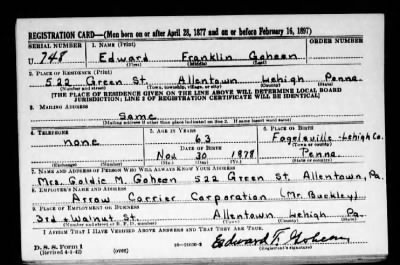 REGISTRATION CARD—(Men born on or after April 28, 1877 and on or before February 16, 1897)
SERIAL NUMBER 1. NAME (Print) ORDER NUMBER
U 748 Edward Franklin Goheen
(First) (Middle) (Last)
2. PLACE OF RESIDENCE (Print)
522 Green St. Allentown Lehigh Penna.
(Number and street) (Town, township, village, or city) (County) (State)
[THE PLACE OF RESIDENCE GIVEN ON THE LINE ABOVE WILL DETERMINE LOCAL BOARD
JURISDICTION; LINE 2 OF REGISTRATION CERTIFICATE WILL BE IDENTICAL]
3. MAILING ADDRESS
Same
[Mailing address if other than place indicated on line 2. If same insert word same]
4. TELEPHONE 5. AGE IN YEARS 6. PLACE OF BIRTH
none 63 Fogelsville-Lehigh Co.
DATE OF BIRTH (Town or county)
Nov 30 1878 Penna.
(Exchange) (Number) (Mo.) (Day) (Yr.) (State or country)
7. NAME AND ADDRESS OF PERSON WHO WILL ALWAYS KNOW YOUR ADDRESS
Mrs. Goldie M. Goheen 522 Green St. Allentown, Pa.
8. EMPLOYER'S NAME AND ADDRESS
Arrow Carrier Corporation (Mr. Buckley)
9. PLACE OF EMPLOYMENT OR BUSINESS
3rd + Walnut St. Allentown Lehigh Pa.
(Number and street or R. F. D. number) (Town) (County) (State)
I AFFIRM THAT I HAVE VERIFIED ABOVE ANSWERS AND THAT THEY ARE TRUE.
D. S. S. Form 1
(Revised 4-1-42) (over) Edward F. Goheen
(Registrant's signature)